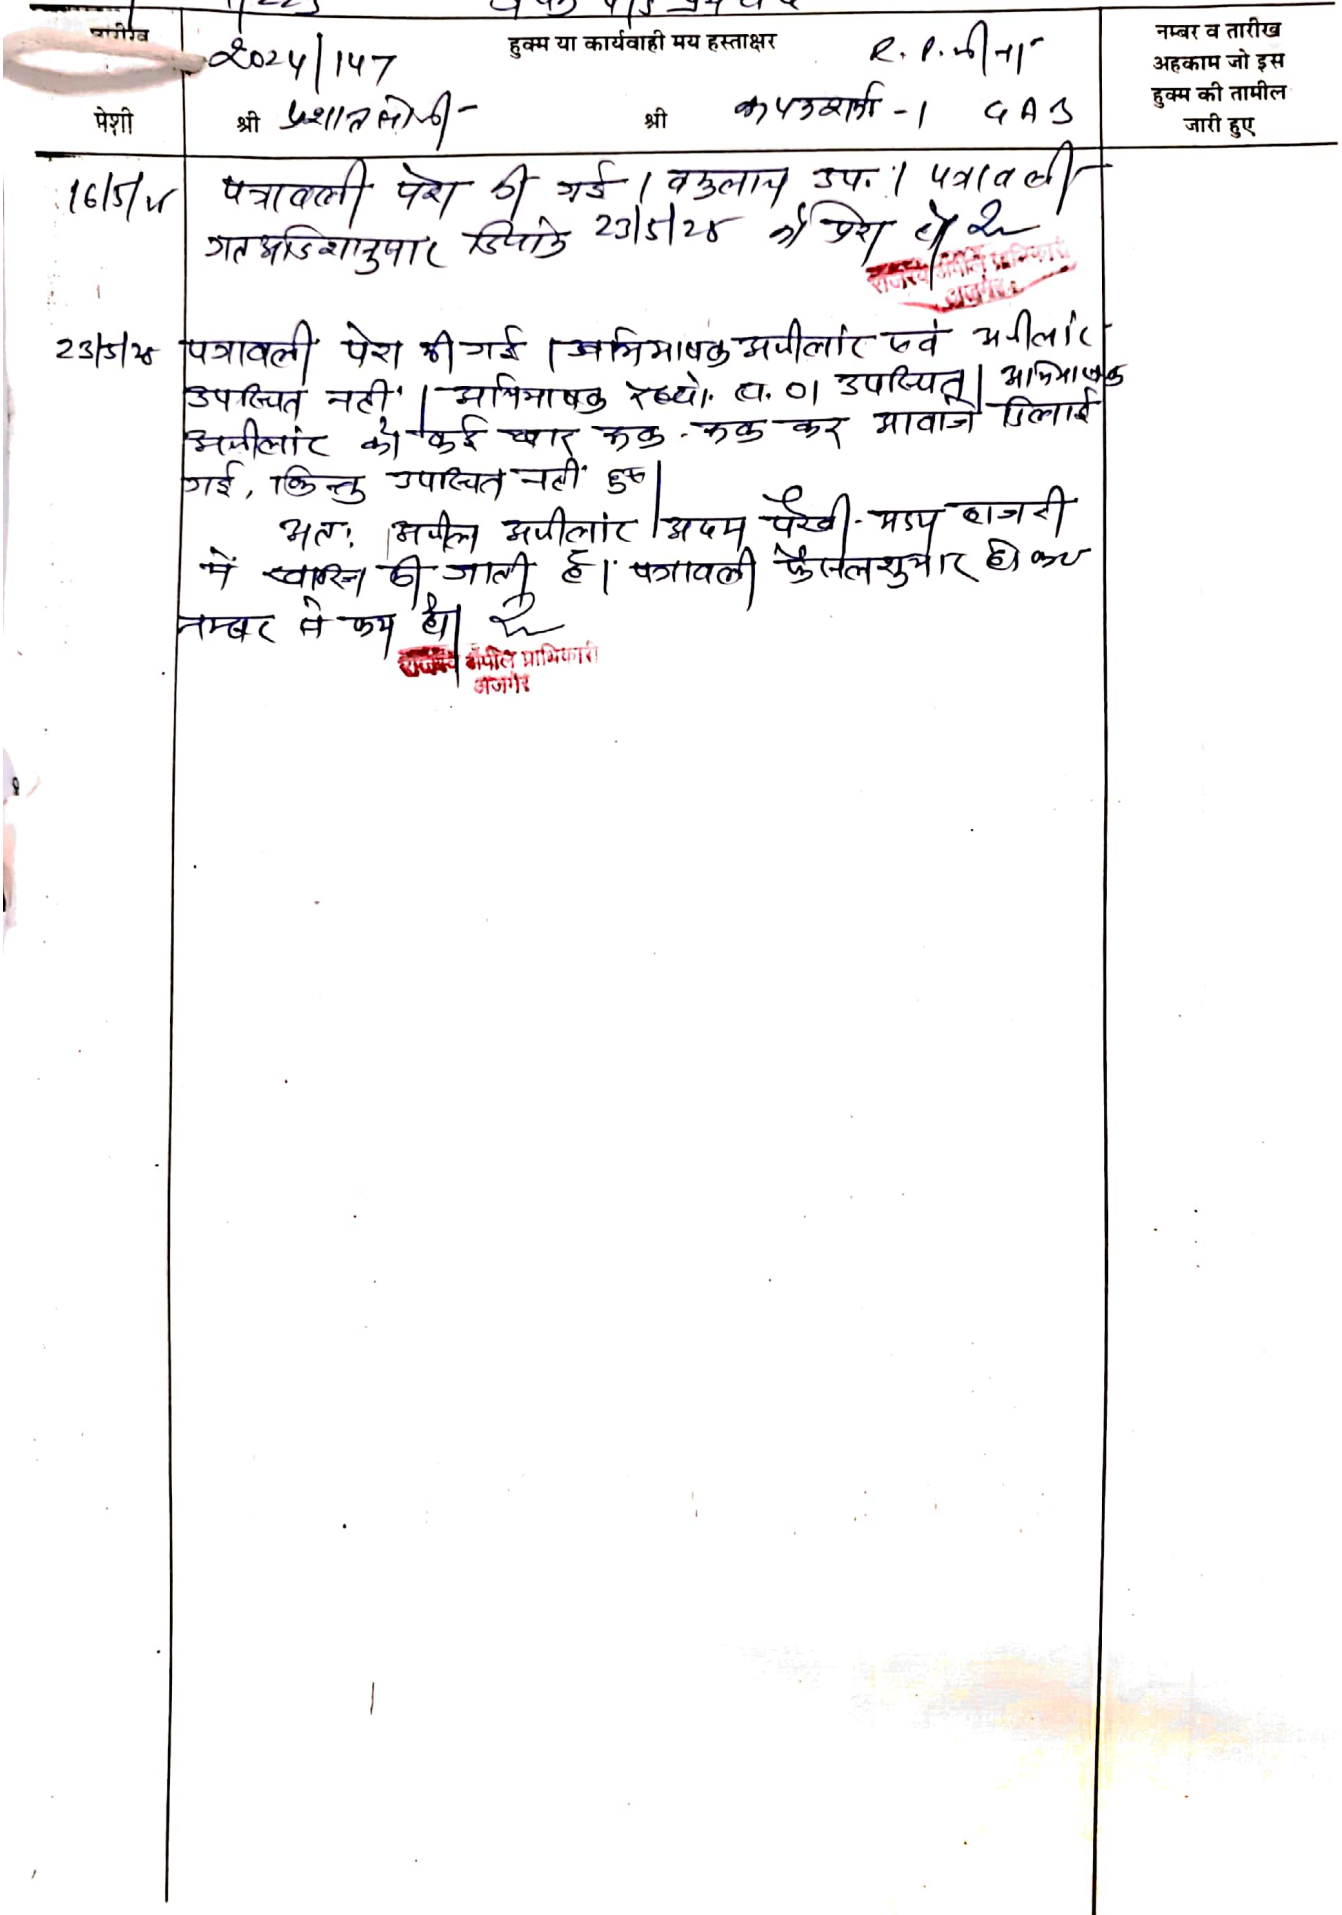 तारीख
2024/147
हुक्म या कार्यवाही मय हस्ताक्षर
R. P. मीना
नम्बर व तारीख
अहकाम जो इस
हुक्म की तामील
जारी हुए
पेशी
श्री प्रशान्त सोनी
श्री
शर्मा -1 GAB
16/5/25 पत्रावली पेश की गई। वकुलाय उप.। पत्रावली
गत आदेशानुसार दिनांक 23/5/25 को पेश हो
राजस्व अपील प्राधिकारी
अजमेर
23/5/25 पत्रावली पेश की गई। अभिभाषक अपीलांट एवं अपीलांट
उपस्थित नहीं। अभिभाषक रेस्पो. स. 01 उपस्थित। अभिभाषक
अपीलांट को कई बार रूक-रूक कर आवाजे दिलाई
गई, किन्तु उपस्थित नहीं हुए।
अतः अपील अपीलांट अदम पैरवी-अदम हाजरी
में खारिज की जाती है। पत्रावली फैसलशुमार होकर
नम्बर से कम हो।
राजस्व अपील प्राधिकारी
अजमेर